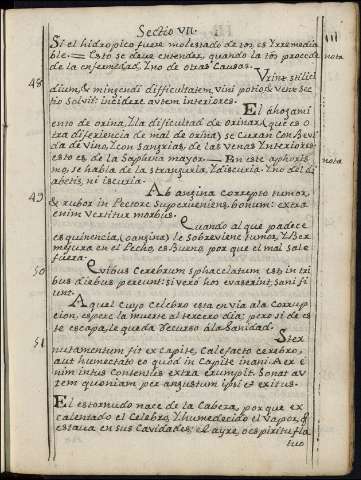 Sectio VII.
111
Si el hidropico fuere molestado de tos, es Yrremedia
ble.— Esto se deve entender, quando la tos procede
nota
de la enfermedad, Y no de otras Causas.
48
Vrinæ stilici
dium, & mingendi difficultatem, vini potio & venæ sec
tio Solvit: incidere autem interiores.
El ahogami
ento de orina, Y la dificultad de orinar, (que es o
tra diferiencia de mal de orina) se Curan Con Bevi
da de Vino, Y con Sangrias, de las venas Ynteriores:
esto es de la Saphena mayor.— En este aphoris
nota
mo, se habla de la stranguria, Y disuria: Y no del di
abetis, ni iscuria.
49
Ab angina correpto tumor,
& rubor in Pectore Superueniens, bonum: extra
enim Vertitur morbus.
Quando al que padece
esquinencia, (o angina) le Sobreviene tumor, Y Ber
mejura en el Pecho, es Bueno, por que el mal sale
fuera.
50
Quibus Cerebrum sphacelatum est, in tri
bus diebus pereunt: si vero hos evaserint, sani fi
unt.
Aquel Cuyo Celebro esta en via a la Corrup
cion, espere la muerte al tercero dia; pero si de es
te escapa, le queda recurso à la Sanidad.
51
Ster
nutamentum fit ex Capite, Calefacto cerebro,
aut humectato eo quod in Capite inani: Aer e
nim intus Contentus extra erumpit. Sonat au
tem quoniam per angustum ipsi est exitus.
El estornudo nace de la Cabeza, por que ex
calentado el Celebro, Y humedecido el Vapor, q̃
estava en sus Cavidades; el ayre, o espiritu fla
tuo